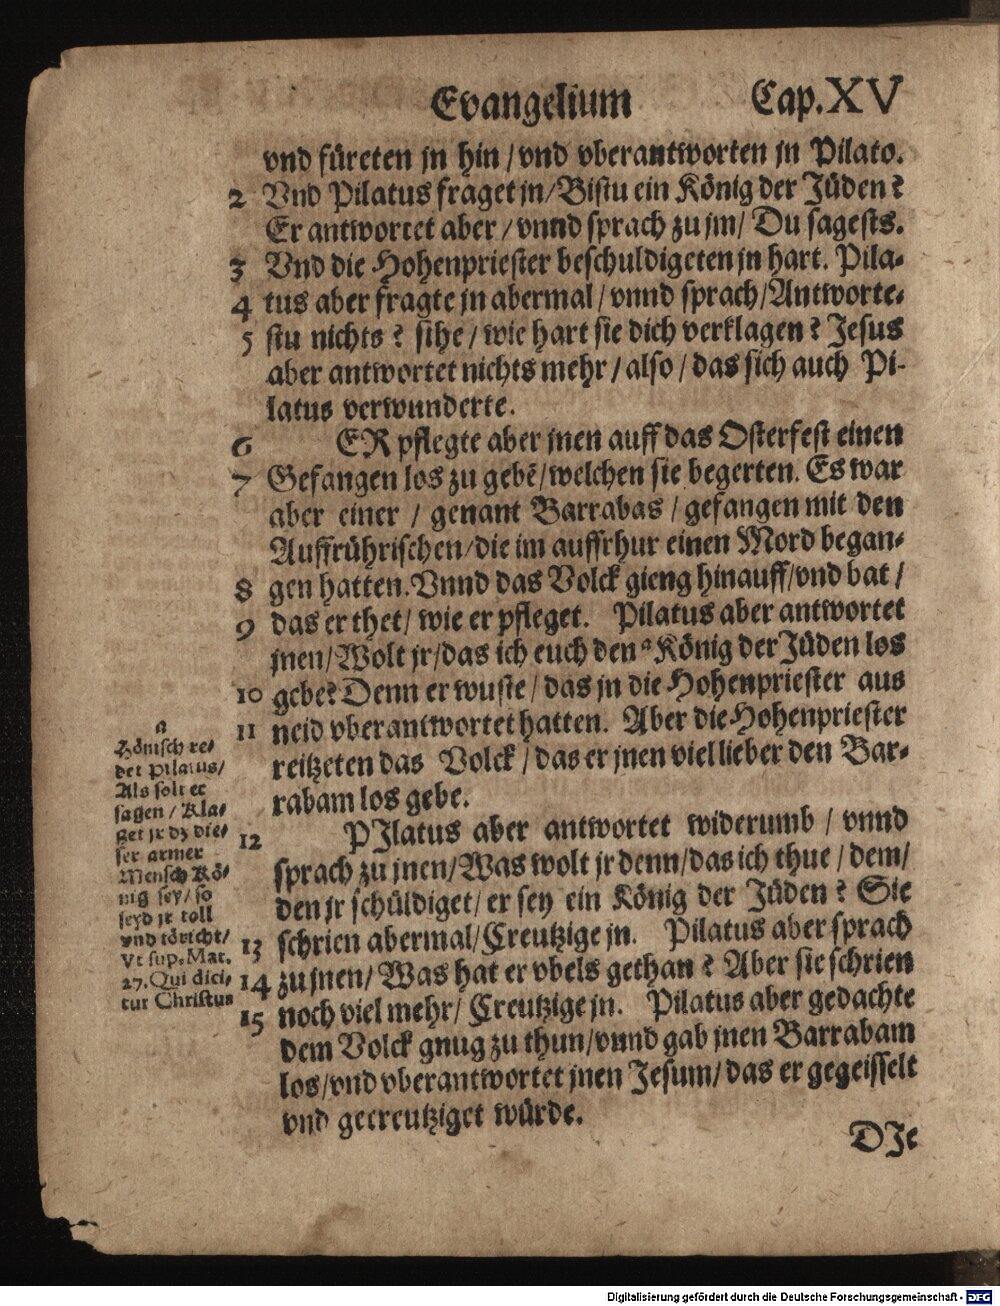 Evangelium Cap. XV
vnd füreten jn hin / vnd vberantworten jn Pilato.
2 Vnd Pilatus fraget jn / Bistu ein König der Jüden?
Er antwortet aber / vnnd sprach zu jm / Du sagests.
3 Vnd die Hohenpriester beschuldigeten jn hart. Pila-
4 tus aber fragte jn abermal / vnnd sprach / Antworte-
5 stu nichts? sihe / wie hart sie dich verklagen? Jesus
aber antwortet nichts mehr / also / das sich auch Pi-
latus verwunderte.
6 ER pflegte aber jnen auff das Osterfest einen
7 Gefangen los zu gebē / welchen sie begerten. Es war
aber einer / genant Barrabas / gefangen mit den
Auffrührischen / die im auffrhur einen Mord began-
8 gen hatten. Vnnd das Volck gieng hinauff / vnd bat /
9 das er thet / wie er pfleget. Pilatus aber antwortet
jnen / Wolt jr / das ich euch den ᵃ König der Jüden los
10 gebe? Denn er wuste / das jn die Hohenpriester aus
11 neid vberantwortet hatten. Aber die Hohenpriester
reitzeten das Volck / das er jnen viel lieber den Bar-
rabam los gebe.
12 PJlatus aber antwortet widerumb / vnnd
sprach zu jnen / Was wolt jr denn / das ich thue / dem /
den jr schüldiget / er sey ein König der Jüden? Sie
13 schrien abermal / Creutzige jn. Pilatus aber sprach
14 zu jnen / Was hat er vbels gethan? Aber sie schrien
15 noch viel mehr / Creutzige jn. Pilatus aber gedachte
dem Volck gnug zu thun / vnnd gab jnen Barrabam
los / vnd vberantwortet jnen Jesum / das er gegeisselt
vnd gecreutziget würde.
DJe
a
Hönisch re-
det Pilatus /
Als solt er
sagen / Kla-
get jr dz die-
ser armer
Mensch Kö-
nig sey / so
seyd jr toll
vnd töricht /
Vt sup. Mat.
27. Qui dici-
tur Christus
Digitalisierung gefördert durch die Deutsche Forschungsgemeinschaft - DFG